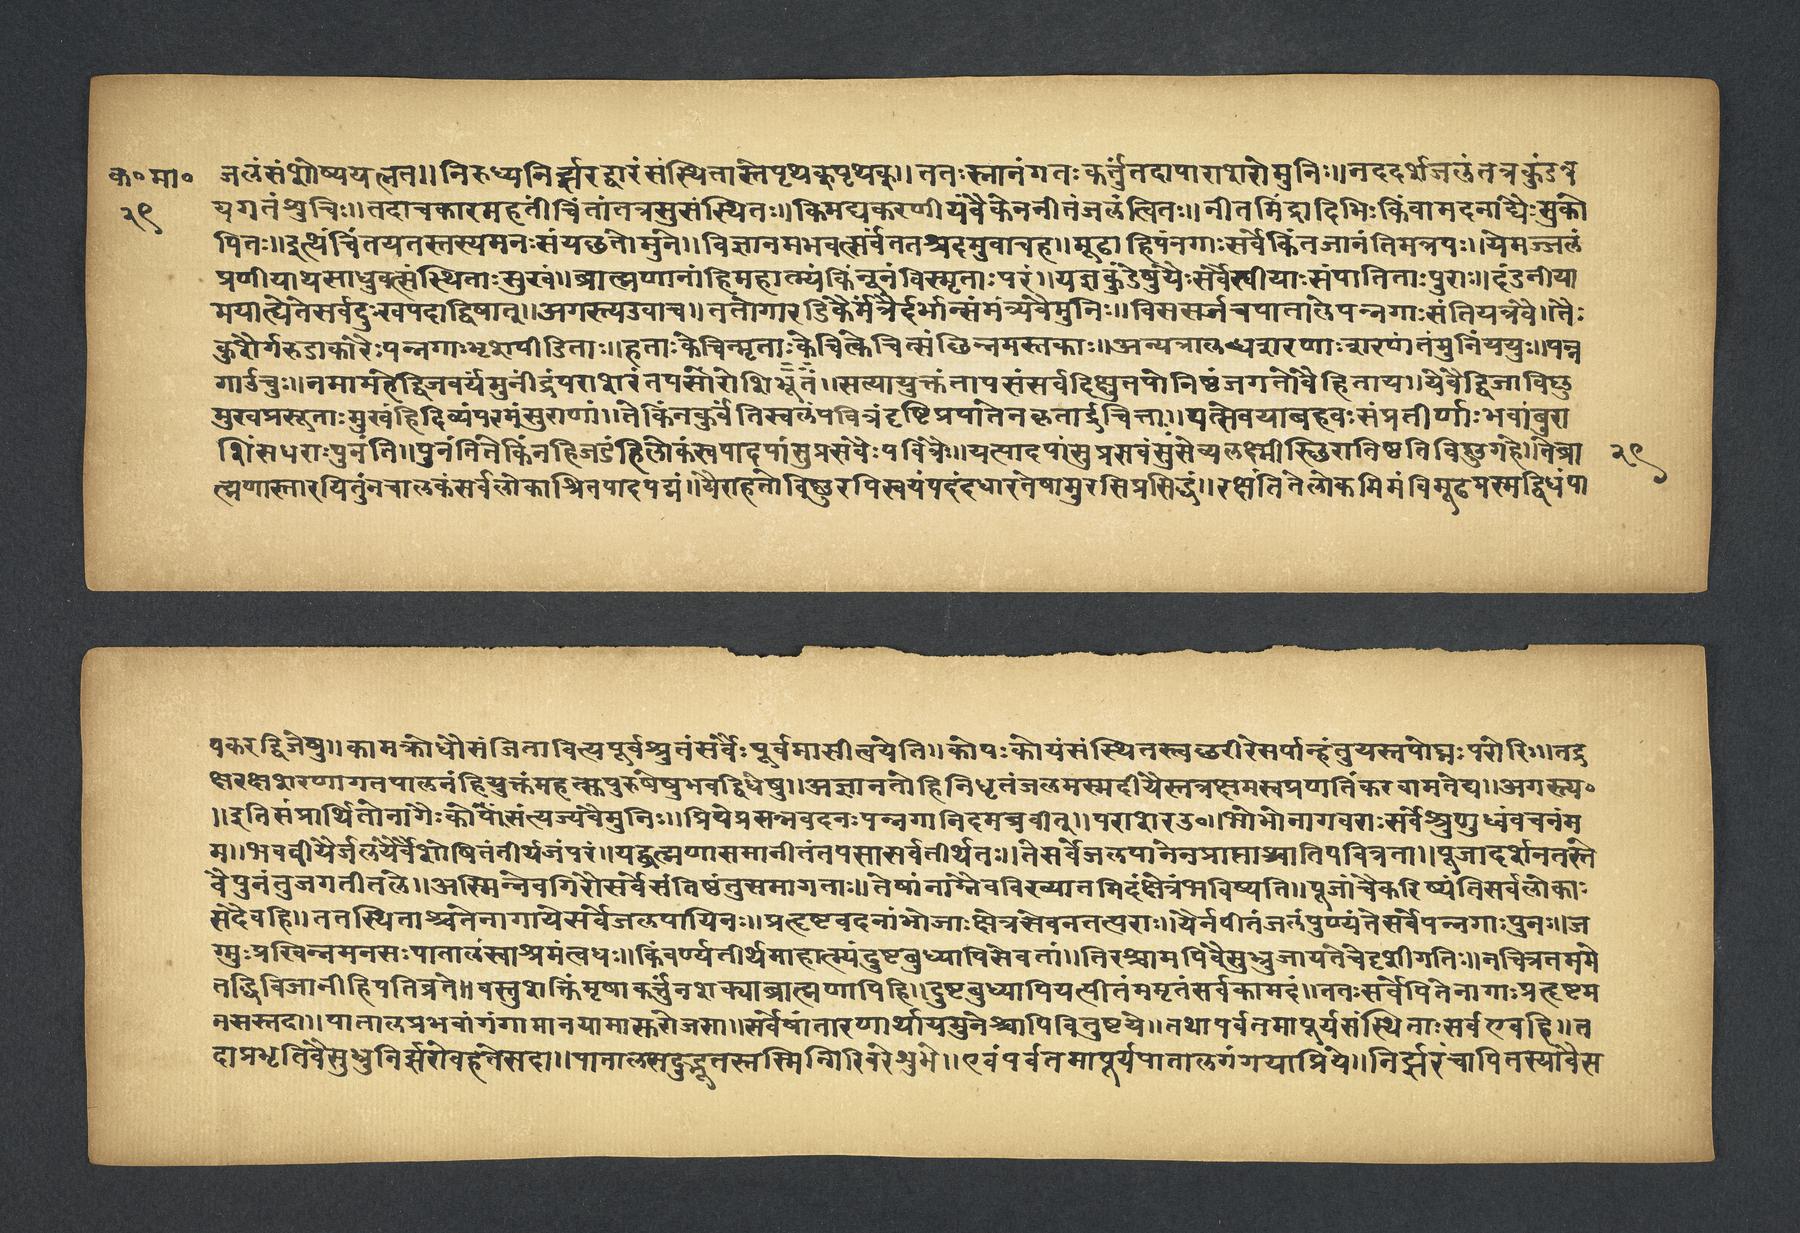 क॰मा॰
२९
जलंसंशोष्ययत्नत॥निरुध्यनिर्झरद्वारंसंस्थितास्तेपृथक्पृथक्॥ततःस्नानंगतःकर्त्तुंतदापाराशरोमुनिः॥नददर्शजलंतत्रकुंडत्र
यगतंशुचिः॥तदाचकारमहतींचिंतांतत्रसुसंस्थितः॥किमद्यकरणीयंवैकेननीतंजलंत्वितः॥नीतमिंद्रादिभिःकिंवामदनाद्यैःसुको
पितः॥इत्थंचिंतयतस्तस्यमनःसंयछतोमुने॥विज्ञानमभवत्सर्वंततश्चेदमुवाचह॥मूढाहिपंनगाःसर्वेकिंनजानंतिमत्तपः॥येमज्जलं
प्रणीयाथसाधुवत्संस्थिताःसुखं॥ब्राह्मणानांहिमहात्म्यंकिंनूनंविस्मृताःपरं॥यज्ञकुंडेषुयैःसर्वेस्वीयाःसंपातिताःपुराः॥दंडनीया
मयात्येतेसर्वदुःखपदाद्विषात्॥अगस्त्यउवाच॥ततोगारुडिकैर्मंत्रैर्दर्भान्संमंत्र्यवैमुनिः॥विससर्जचपातालेपन्नगाःसंतियत्रवै॥तैः
कुशैर्गरुडाकारैःपन्नगाःभृशपीडिताः॥हताःकेचिन्मृताःकेचित्केचित्संछिन्नमस्तकाः॥अन्यत्रालब्धशरणाःशरणंतंमुनिंययुः॥पन्न
गाऊचुः॥नमामहेद्विजवर्यमुनींद्रंपराशरंतपसोराशिभूतं॥सत्यायुक्तंतापसंसर्वदिक्षुतपोनिष्ठंजगतोवैहिताय॥येवैद्विजाविष्णु
मुखप्रसूताःमुखंहिदिव्यंपरमंसुराणां॥तेकिंनकुर्वंतिस्वलंपवित्रंदृष्टिप्रपातेनकृतार्द्रचित्ता॥यत्सेवयाबहवःसंप्रतीर्णाःभवांबुरा
शिंसधराःपुनंति॥पुनंतितेकिंनहिजडंहिलोकंस्वपादपांसुप्रसवैःपवित्रैः॥यत्पादपांसुप्रसवंसुंसेव्यलक्ष्मीस्थिरातिष्ठतिविष्णुगेहे॥तेब्रा
२९
ह्मणास्तारयितुंनचालकंसर्वलोकाश्रितपादपद्मं॥यैराहतोविष्णुरपिस्वयंपदंदधारतेषामुरसिप्रसिद्धं॥रक्षंतितेलोकमिमंविमूढमस्मद्विधंपा
पकरद्विजेषु॥कामक्रोधौसंजितावित्यपूर्वंश्रुतंसर्वैःपूर्वमासीत्वयेति॥कोपःकोयंसंस्थितस्त्वछरीरेसर्पान्हंतुयस्तपोघ्नःपरोरिः॥तद्र
क्षरक्षशरणागतपालनंहियुक्तंमहत्सुपुरुषेषुभवद्विधेषु॥अज्ञानतोहिनिधृतंजलमस्मदीयैस्तत्रक्षमस्वप्रणतिंकरवामतेद्य॥अगस्त्य॰
॥इतिसंप्रार्थितोनागैःकोपंसंत्यज्यवैमुनिः॥प्रियेप्रसन्नवदनःपन्नगानिदमब्रवीत्॥पराशरउ॰॥भोभोनागवराःसर्वेश्रुणुध्वंवचनंम
म॥भवदीयैर्जलंयैर्वैशोषितंतीर्थजंपरं॥यद्ब्रह्मणासमानीतंतपसासर्वतीर्थतः॥तेसर्वेजलपानेनप्राप्ताश्चातिपवित्रता॥पूजादर्शनतस्ते
वैपुनंतुजगतीतले॥अस्मिन्नेवगिरौसर्वेसंतिष्ठंतुसमागताः॥तेषांनाम्नैवविख्यातमिदंक्षेत्रंभविष्यति॥पूजांचैकरिष्यंतिसर्वलोकाः
सदैवहि॥ततस्थिताश्चतेनागायेसर्वेजलपायिनः॥प्रहृष्टवदनांभोजाःक्षेत्रसेवनतत्पराः॥यैर्नपीतंजलंपुण्यंतेसर्वेपन्नगाःपुनः॥ज
ग्मुःप्रखिन्नमनसःपातालंस्वाश्रमंत्वधः॥किंवर्ण्यतीर्थमाहात्म्यंदुष्टबुध्यापिसेवतां॥तिरश्चामपिवैसुभ्रुजायतेचेदृशीगतिः॥नचित्रतममे
तद्धिविजानीहिपतिव्रते॥वस्तुशक्तिंमृषाकर्त्तुंनशक्याब्राह्मणापिहि॥दुष्टबुध्यापियत्पीतंममृतंसर्वकामदं॥ततःसर्वेपितेनागाःप्रहृष्टम
नसस्तदा॥पातालप्रभवांगंगामानयामासुरोजसा॥सर्वेषांतारणार्थायमुनेश्चापिवितुष्टये॥तथापर्वतमापूर्यसंस्थिताःसर्वएवहि॥त
दाप्रभृतिवैसुधुनिर्झरोवहतेसदा॥पातालसदुद्भूतस्तस्मिन्गिरिवरेशुभे॥एवंपर्वतमापूर्यपातालगंगयाप्रिये॥निर्झरंचापितस्यांवैस